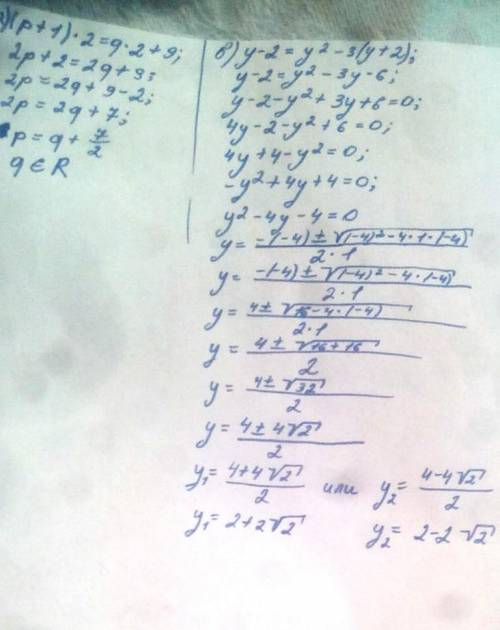 )(p+1)·2=q·2+9;
2p+2=2q+9;
2p=2q+9-2;
2p=2q+7;
p=q+7/2
q∈R
в) y-2=y²-3(y+2);
y-2=y²-3y-6;
y-2-y²+3y+6=0;
4y-2-y²+6=0;
4y+4-y²=0;
-y²+4y+4=0;
y²-4y-4=0
y=(-(-4)±√((-4)²-4·1·(-4)))/(2·1)
y=(-(-4)±√((-4)²-4·(-4)))/(2·1)
y=(4±√(16-4·(-4)))/(2·1)
y=(4±√(16+16))/2
y=(4±√32)/2
y=(4±4√2)/2
y₁=(4+4√2)/2 или y₂=(4-4√2)/2
y₁=2+2√2 y₂=2-2√2